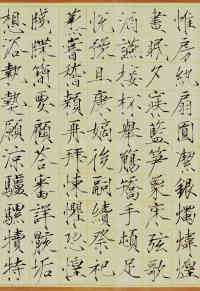 帷房紈扇圓潔銀燭煒煌
晝眠夕寐藍笋象床弦歌
酒讌接杯舉觴矯手頓足
悅豫且康嫡後嗣續祭祀
蒸嘗稽顙再拜悚懼恐惶
牋牒簡要顧答審詳骸垢
想浴執熱願涼驢騾犢特